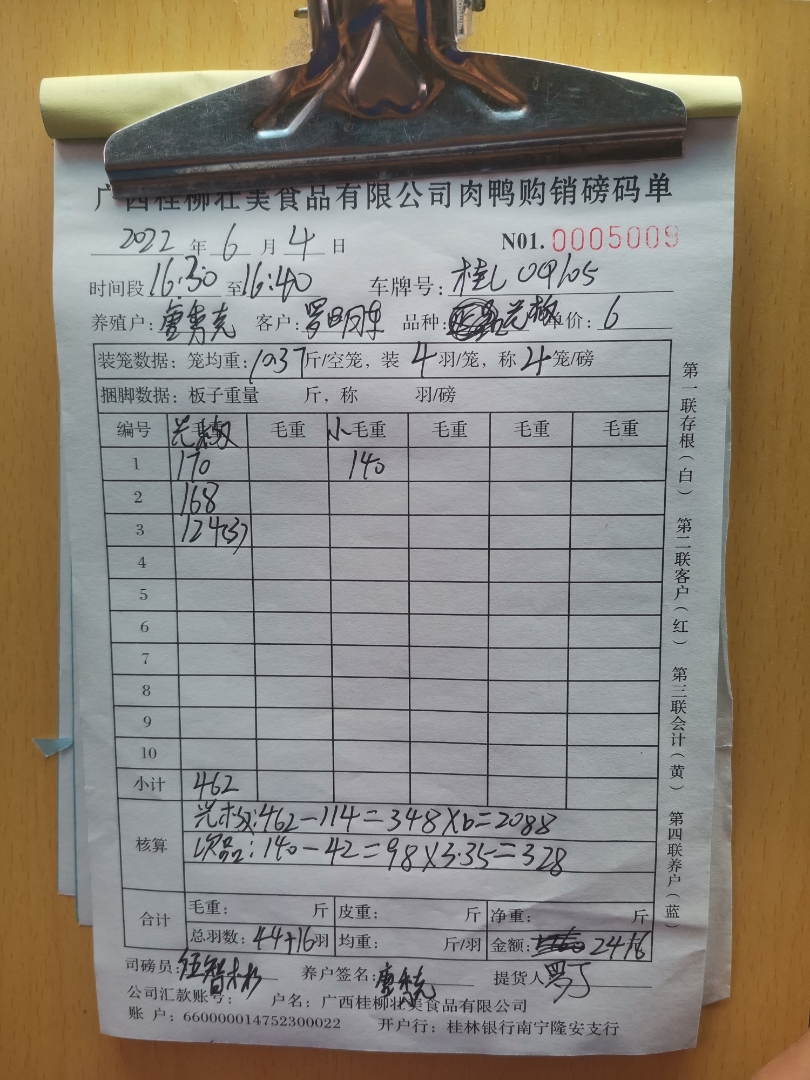 广西桂柳壮美食品有限公司肉鸭购销磅码单
2022 年 6 月 4 日 N01. 0005009
时间段 16:30 至 16:40 车牌号:
养殖户: 客户: 罗 品种: 单价: 6
装笼数据: 笼均重: 10.37 斤/空笼, 装 4 羽/笼, 称 4 笼/磅
捆脚数据: 板子重量 斤, 称 羽/磅
编号 毛重 小毛重 毛重 毛重 毛重
1 170 140
2 168
3 124(3)
4
5
6
7
8
9
10
小计 462
核算 462-114=348×6=2088
次品: 140-42=98×3.35=328
合计 毛重: 斤 皮重: 斤 净重: 斤
总羽数: 44+16羽 均重: 斤/羽 金额: 2416
司磅员: 伍智 养户签名: 提货人
公司汇款账号: 户名: 广西桂柳壮美食品有限公司
账 户: 660000014752300022 开户行: 桂林银行南宁隆安支行
第一联存根(白) 第二联客户(红) 第三联会计(黄) 第四联养户(蓝)